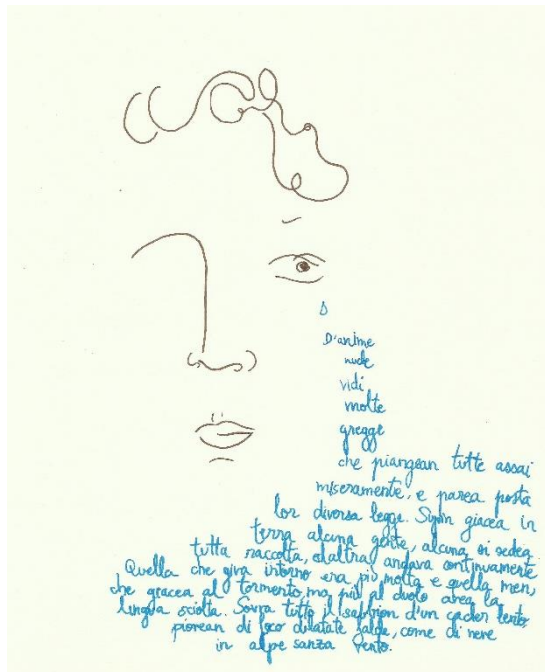 D'anime
nude
vidi
molte
gregge
che piangean tutte assai
miseramente, e parea posta
lor diversa legge. Supin giacea in
terra alcuna gente, alcuna si sedea
tutta raccolta, e altra andava continuamente
Quella che giva intorno era più molta e quella men,
che giacea al tormento, ma più al duolo avea la
lingua sciolta. Sovra tutto il sabbion d'un cader lento,
piovean di foco dilatate falde, come di neve
in alpe sanza vento.